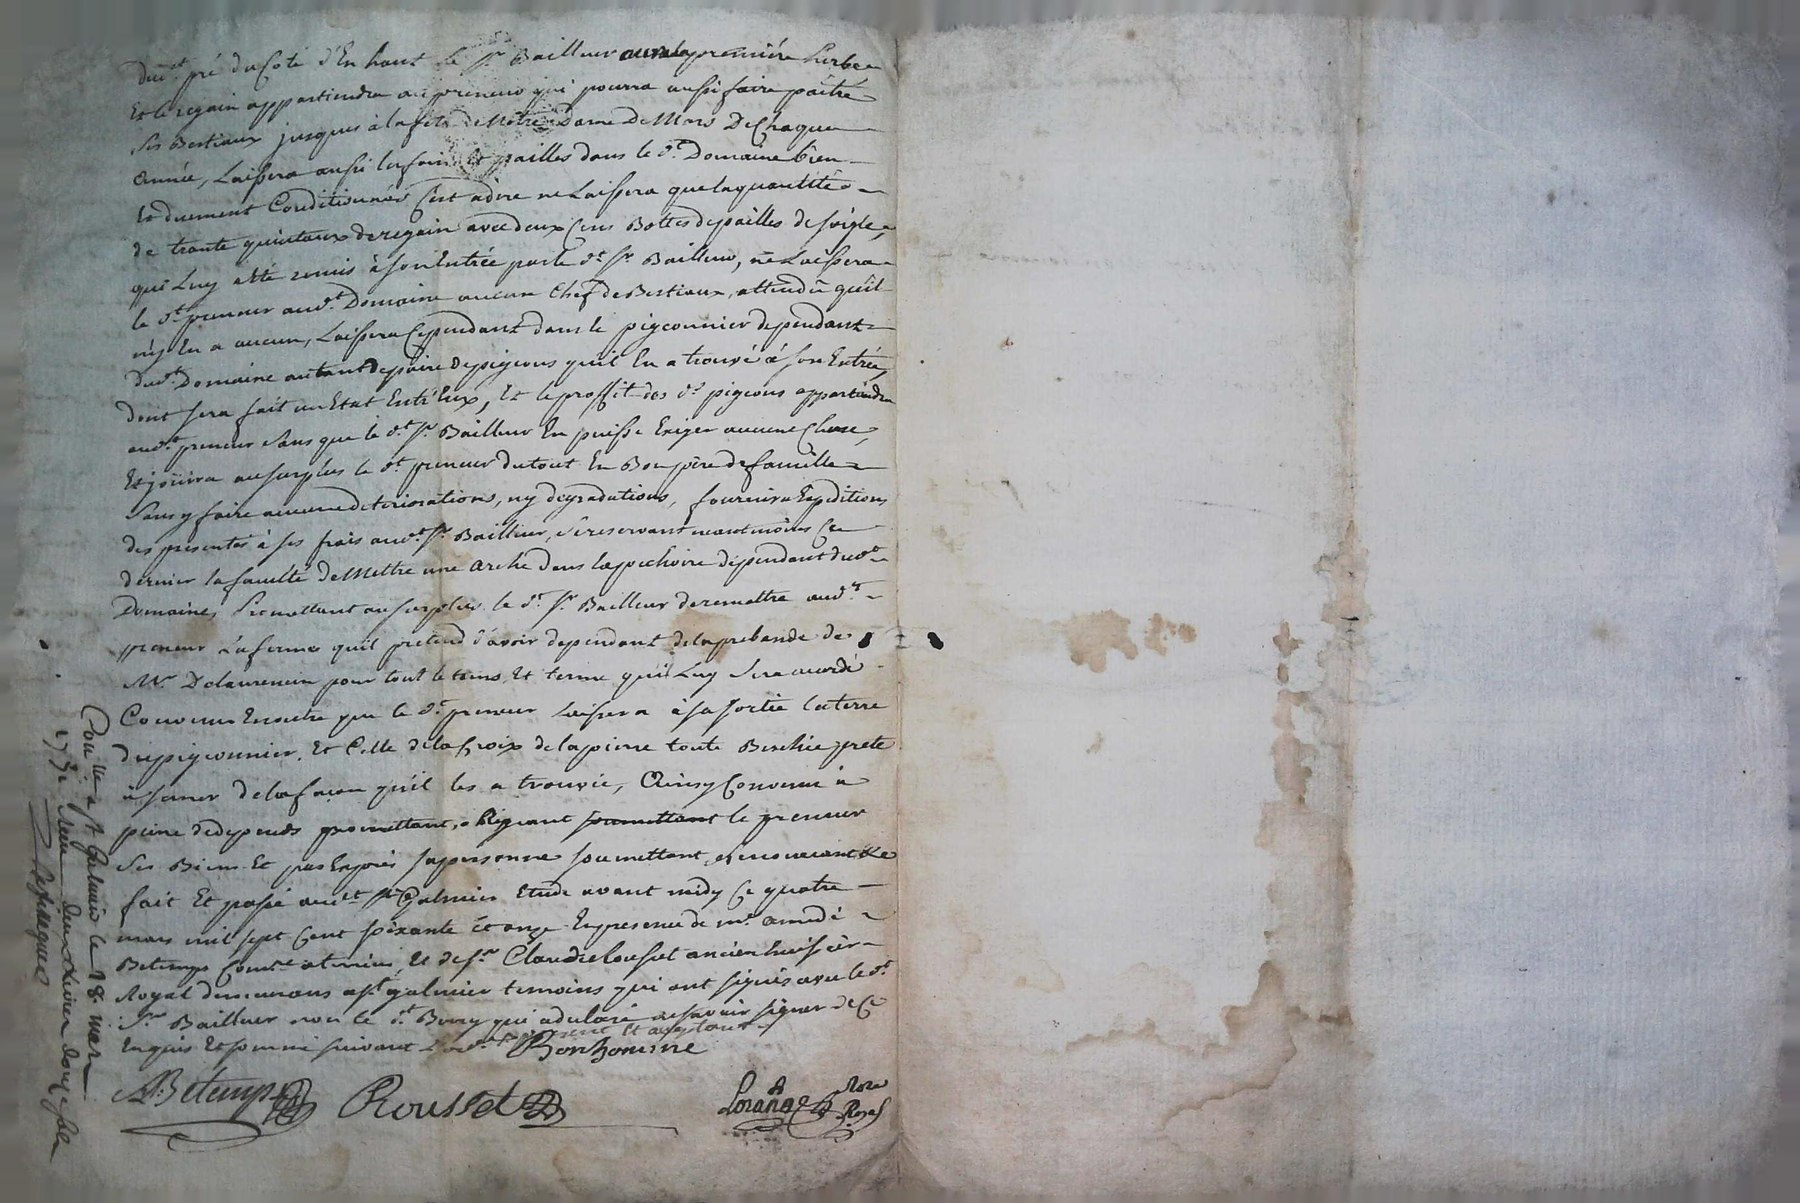 dud.t pré du Coté d'En haut le Sr Bailleur aura la première herbe
Et le regain appartiendra au preneur qui pourra aussi faire paître
Ses Bestiaux jusques à la fete de Notre Dame De Mars De Chaque
Année, Laissera aussi les foin et pailles dans le d.t Domaine bien
Et duement Conditionnés C'est adire ne Laissera que la quantité
de trante quintaux de regain avec deux Cens Bottes de pailles de seigle,
qui Luy a été remis à son Entrée par le d.t Sr Bailleur, ne Laissera
le d.t preneur aud.t Domaine aucun Chef de Bestiaux, attendu qu'il
n'y En a aucun, Laissera Cependant dans le pigeonnier dependant
dud.t Domaine autant de paire de pigeons qu'il En a trouvé à son Entrée,
dont sera fait un Etat Entr'Eux, Et le proffit des d.s pigeons appartiendra
aud.t preneur Sans que le d.t Sr Bailleur En puisse Exiger aucune Chose,
Et jouira au surplus le d.t preneur du tout En Bon père de famille
Sans y faire aucune deteriorations, ny degradations, fournira Expeditions
des presentes à ses frais aud.t Sr Bailleur, Se reservant neantmoins Ce
dernier la faculté de Mettre une Arche dans la pechoire dependant dud.t
Domaine, Promettant au surplus le d.t Sr Bailleur de remettre aud.t
preneur La ferme qu'il pretend d'avoir dependant de la prebande de
Mr Delaurencin pour tout le tems Et terme qu'il Luy Sera accordé
Convenu Encore que le d.t preneur Laissera à sa sortie la terre
du pigeonnier, Et Celle de la Croix de la pierre toute Bechée prete
à semer de la façon qu'il les a trouvée, Ainsy Convenu à
peine de depends promettant, obligeant soumettant le preneur
Ses Biens Et par Exprès sa personne soumettant, renonçant &c
fait Et passé aud.t St Galmier Etude avant midy Ce quatre
mars mil sept Cent soixante Et onze En presence de mr Amedé
Betemps et de Sr Claude Rousset ancien huissier
Royal demeurans à St galmier temoins qui ont signés avec le d.t
Sr Bailleur non le d.t qui a declaré ne savoir signer de Ce
Enquis Et sommé suivant present Et acceptant
Bonhomme
ABetemps Rousset Loränge Nore
Royal
Con.lle a St Galmier le 18. mars
1771 Reçu